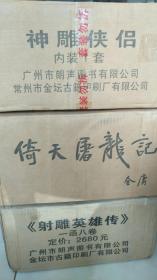 神雕侠侣
内装十套
广州市朗声图书有限公司
常州市金坛古籍印刷厂有限公司
倚天屠龍記
金庸
《射雕英雄传》
一函八卷
定价：2680元
广州市朗声图书有限公司
常州市金坛古籍印刷厂有限公司